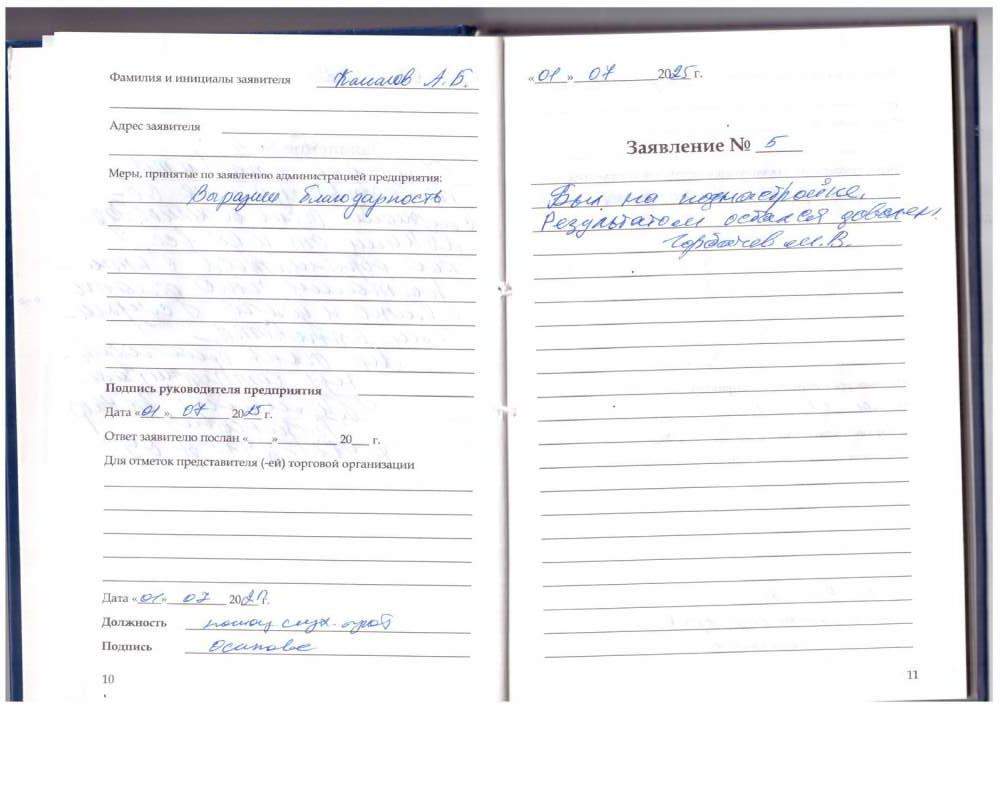 Фамилия и инициалы заявителя Камалов А.Б.
Адрес заявителя
Меры, принятые по заявлению администрацией предприятия:
Выразили благодарность
Подпись руководителя предприятия
Дата «01» 07 2025 г.
Ответ заявителю послан «___»__________ 20___ г.
Для отметок представителя (-ей) торговой организации
Дата «01» 07 20 г.
Должность
Подпись Осипова
10
«01» 07 2025 г.
Заявление № 5
Был на поднастройке.
Результатом остался доволен.
Горбачев М.В.
11